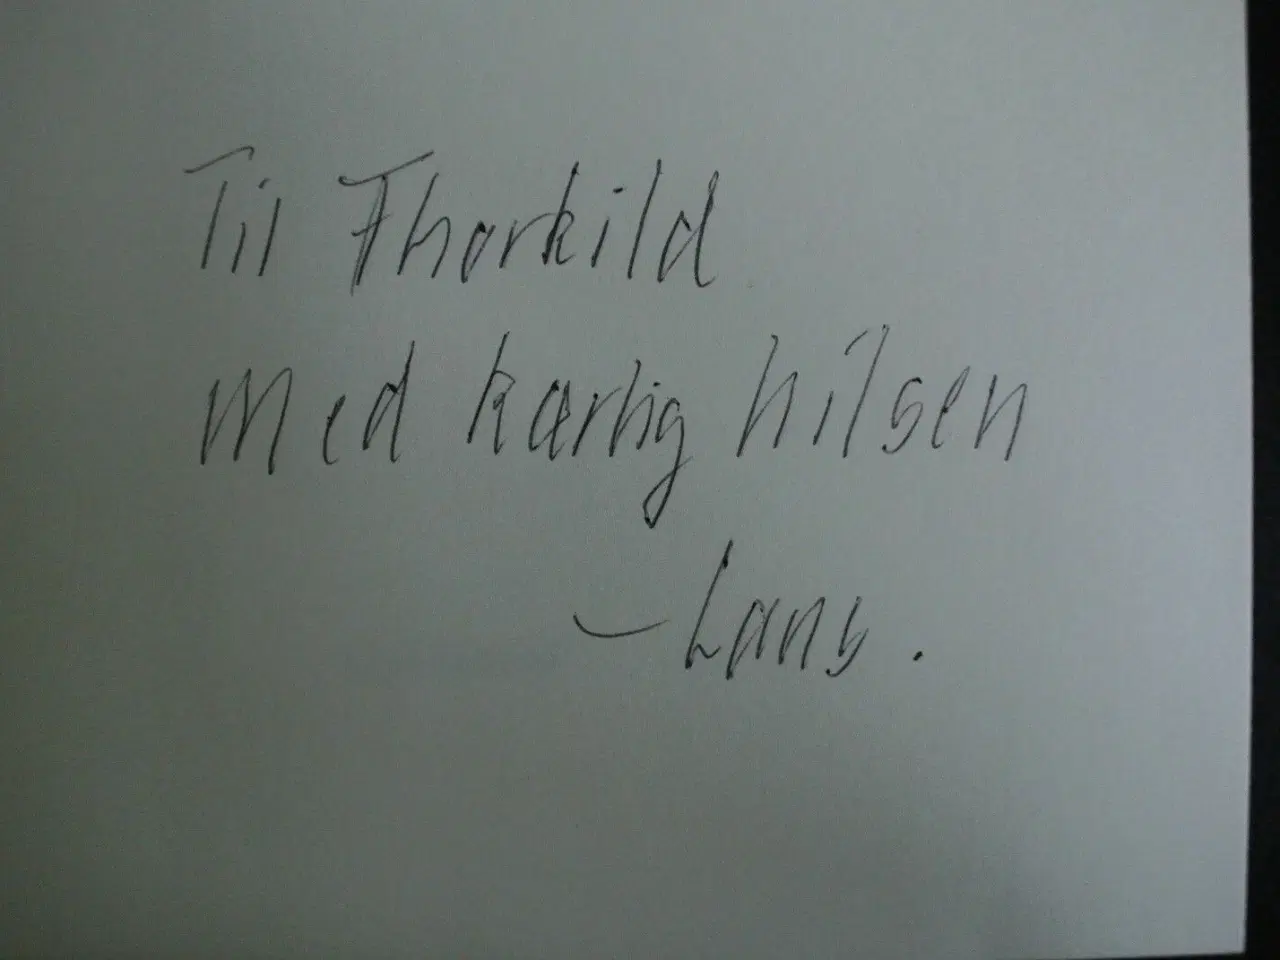 Til Thorkild
Med kærlig hilsen
– Lany.